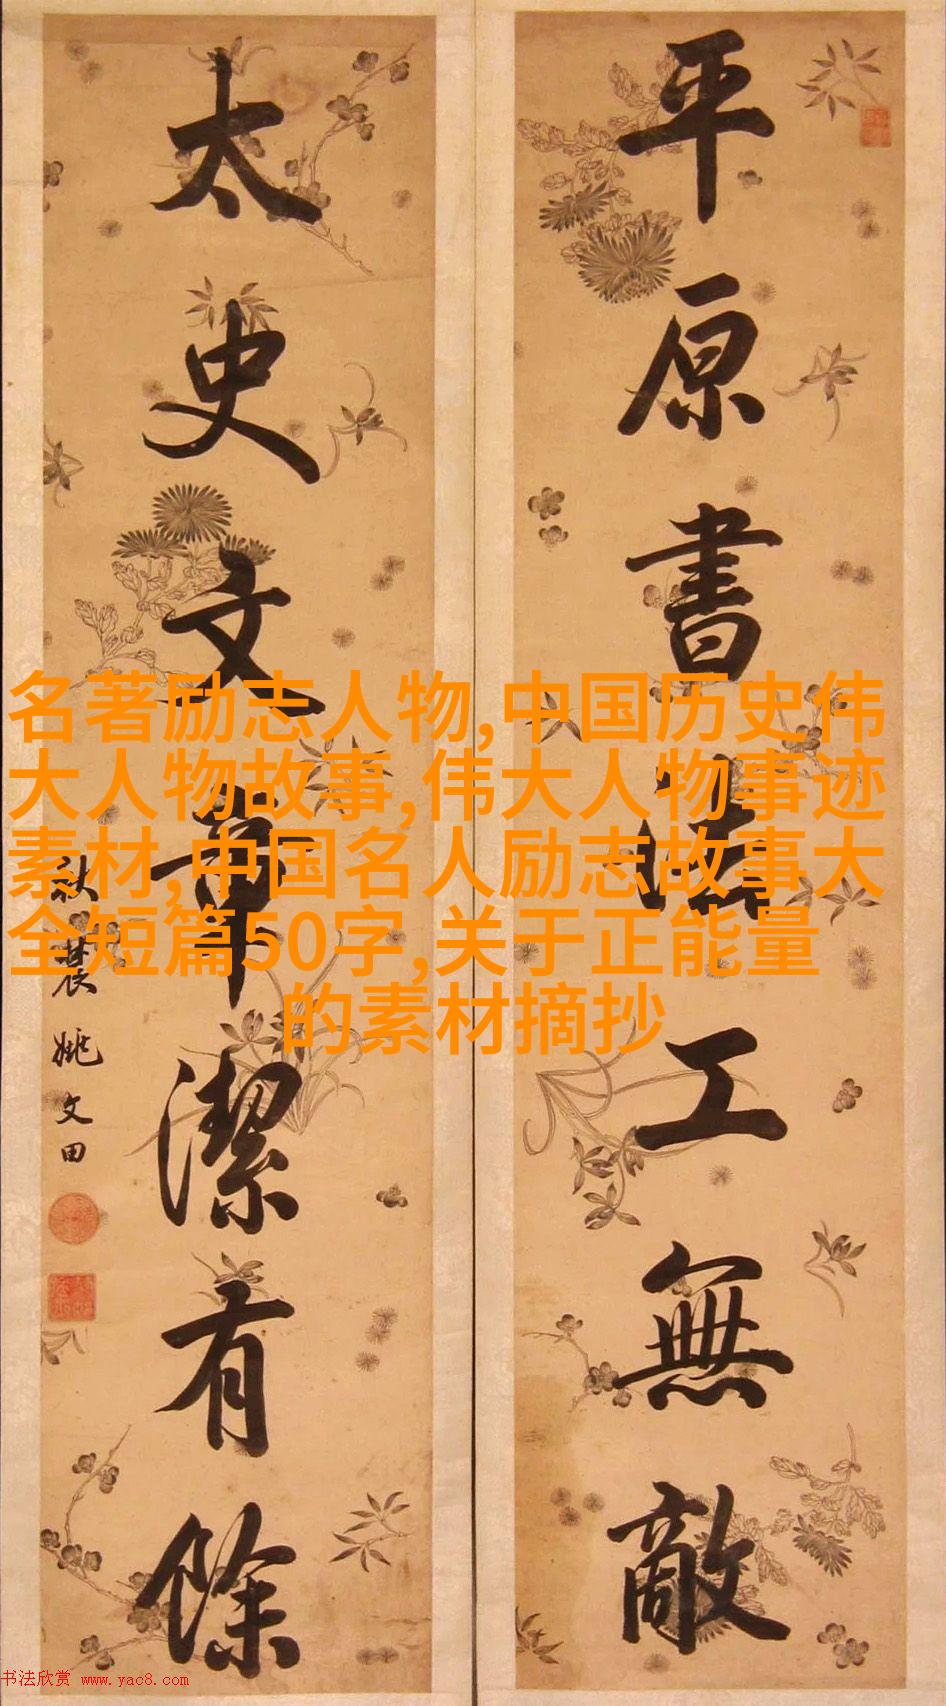 平原書法工無敵
太史文章潔有餘
秋農姚文田
名著励志人物,中国历史伟
大人物故事,伟大人物事迹
素材,中国名人励志故事大
全短篇50字,关于正能量
的素材摘抄
书法欣赏 www.yac8.com